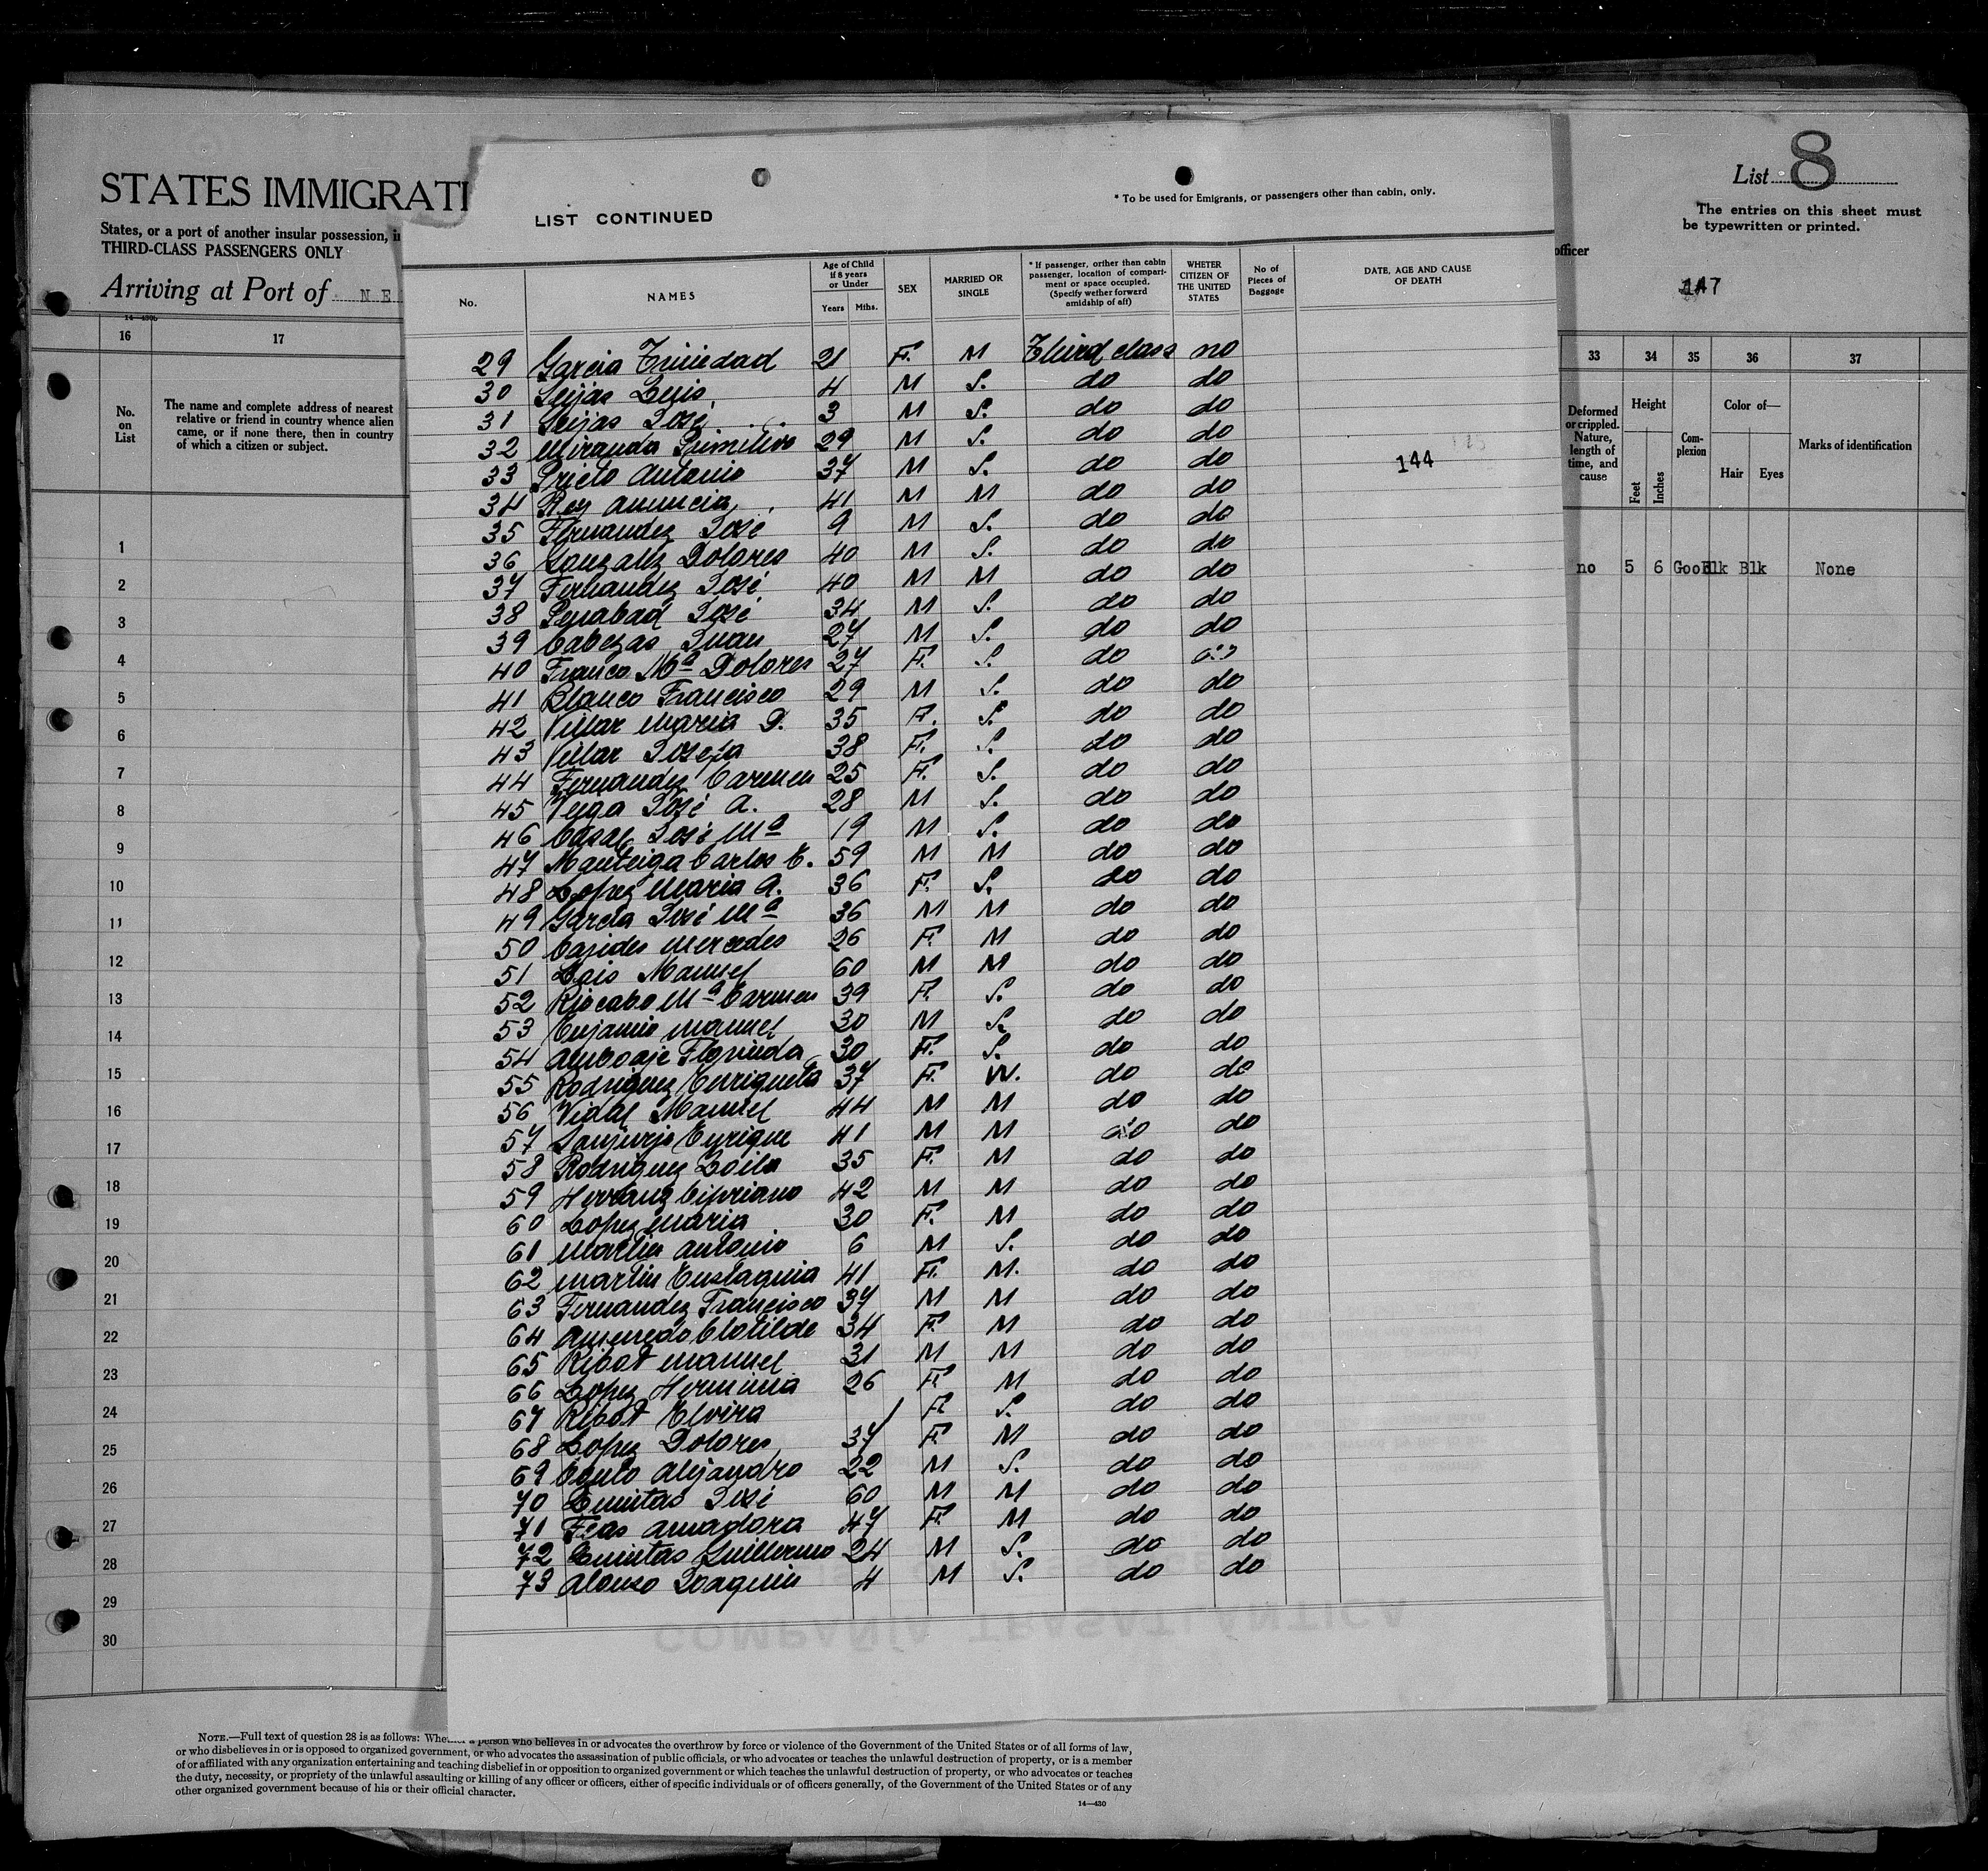 STATES IMMIGRATI
States, or a port of another insular possession, i
THIRD-CLASS PASSENGERS ONLY
Arriving at Port of N E
14—430b
16 17
No. on List
The name and complete address of nearest
relative or friend in country whence alien
came, or if none there, then in country
of which a citizen or subject.
1
2
3
4
5
6
7
8
9
10
11
12
13
14
15
16
17
18
19
20
21
22
23
24
25
26
27
28
29
30
* To be used for Emigrants, or passengers other than cabin, only.
LIST CONTINUED
No.
NAMES
Age of Child
if 8 years
or Under
Years Mths.
SEX
MARRIED OR
SINGLE
* If passenger, orther than cabin
passenger, location of compart-
ment or space occupied.
(Specify wether forward
amidship of aft)
WHETER
CITIZEN OF
THE UNITED
STATES
No of
Pieces of
Baggage
DATE, AGE AND CAUSE
OF DEATH
29 Garcia Trinidad 21 F. M Third class no
30 Seijas Luis 4 M S. do do
31 Seijas José 3 M S. do do
32 Miranda Primitivo 29 M S. do do
33 Prieto Antonio 37 M S. do do 144
34 Rey Anuncia 41 M M do do
35 Fernandez José 9 M S. do do
36 Gonzalez Dolores 40 M S. do do
37 Fernandez José 40 M M do do
38 Penabad José 34 M S. do do
39 Cabezas Juan 27 M S. do do
40 Franco Mª Dolores 27 F. S. do do
41 Blanco Francisco 29 M S. do do
42 Villar Maria D. 35 F. S. do do
43 Villar Josefa 38 F. S. do do
44 Fernandez Carmen 25 F. S. do do
45 Veiga José A. 28 M S. do do
46 Casal José Mª 19 M S. do do
47 Manteiga Carlos E. 59 M M do do
48 Lopez Maria A. 36 F. S. do do
49 Garcia José Mª 36 M M do do
50 Mercedes 26 F. M do do
51 Lois Manuel 60 M M do do
52 Riocabo Mª Carmen 39 F. S. do do
53 Manuel 30 M S. do do
54 Amboaje Florinda 30 F. S. do do
55 Rodriguez Enriqueta 37 F. W. do do
56 Vidal Manuel 44 M M do do
57 Sanjurjo Enrique 41 M M do do
58 Rodriguez Zoila 35 F. M do do
59 Herranz Cipriano 42 M M do do
60 Lopez Maria 30 F. M do do
61 Martin Antonio 6 M S. do do
62 Martin Eustaquia 41 F. M. do do
63 Fernandez Francisco 37 M M do do
64 Clotilde 34 F. M do do
65 Ribot Manuel 31 M M do do
66 Lopez Herminia 26 F. M do do
67 Ribot Elvira / F. S. do do
68 Lopez Dolores 37 F. M do do
69 Couto Alejandro 22 M S. do do
70 José 60 M M do do
71 Feas Amadora 47 F. M do do
72 Guillermo 24 M S. do do
73 Alonso Joaquin 4 M S. do do
COMPAÑIA TRASATLANTICA
List 8
The entries on this sheet must
be typewritten or printed.
officer
33 34 35 36 37
Deformed
or crippled.
Nature,
length of
time, and
cause
Height
Feet Inches
Com-
plexion
Color of—
Hair Eyes
Marks of identification
no 5 6 Good Blk Blk None
NOTE.—Full text of question 28 is as follows: Whether a person who believes in or advocates the overthrow by force or violence of the Government of the United States or of all forms of law,
or who disbelieves in or is opposed to organized government, or who advocates the assassination of public officials, or who advocates or teaches the unlawful destruction of property, or is a member
of or affiliated with any organization entertaining and teaching disbelief in or opposition to organized government or which teaches the unlawful destruction of property, or who advocates or teaches
the duty, necessity, or propriety of the unlawful assaulting or killing of any officer or officers, either of specific individuals or of officers generally, of the Government of the United States or of any
other organized government because of his or their official character.
14—430